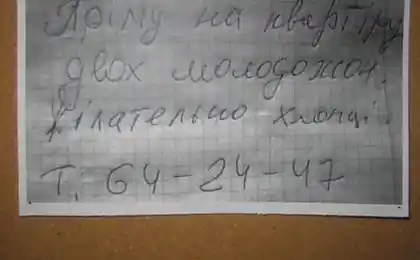 Прійму на квартіру
двох молодожон.
Жілательно хлопці.
Т. 64-24-47